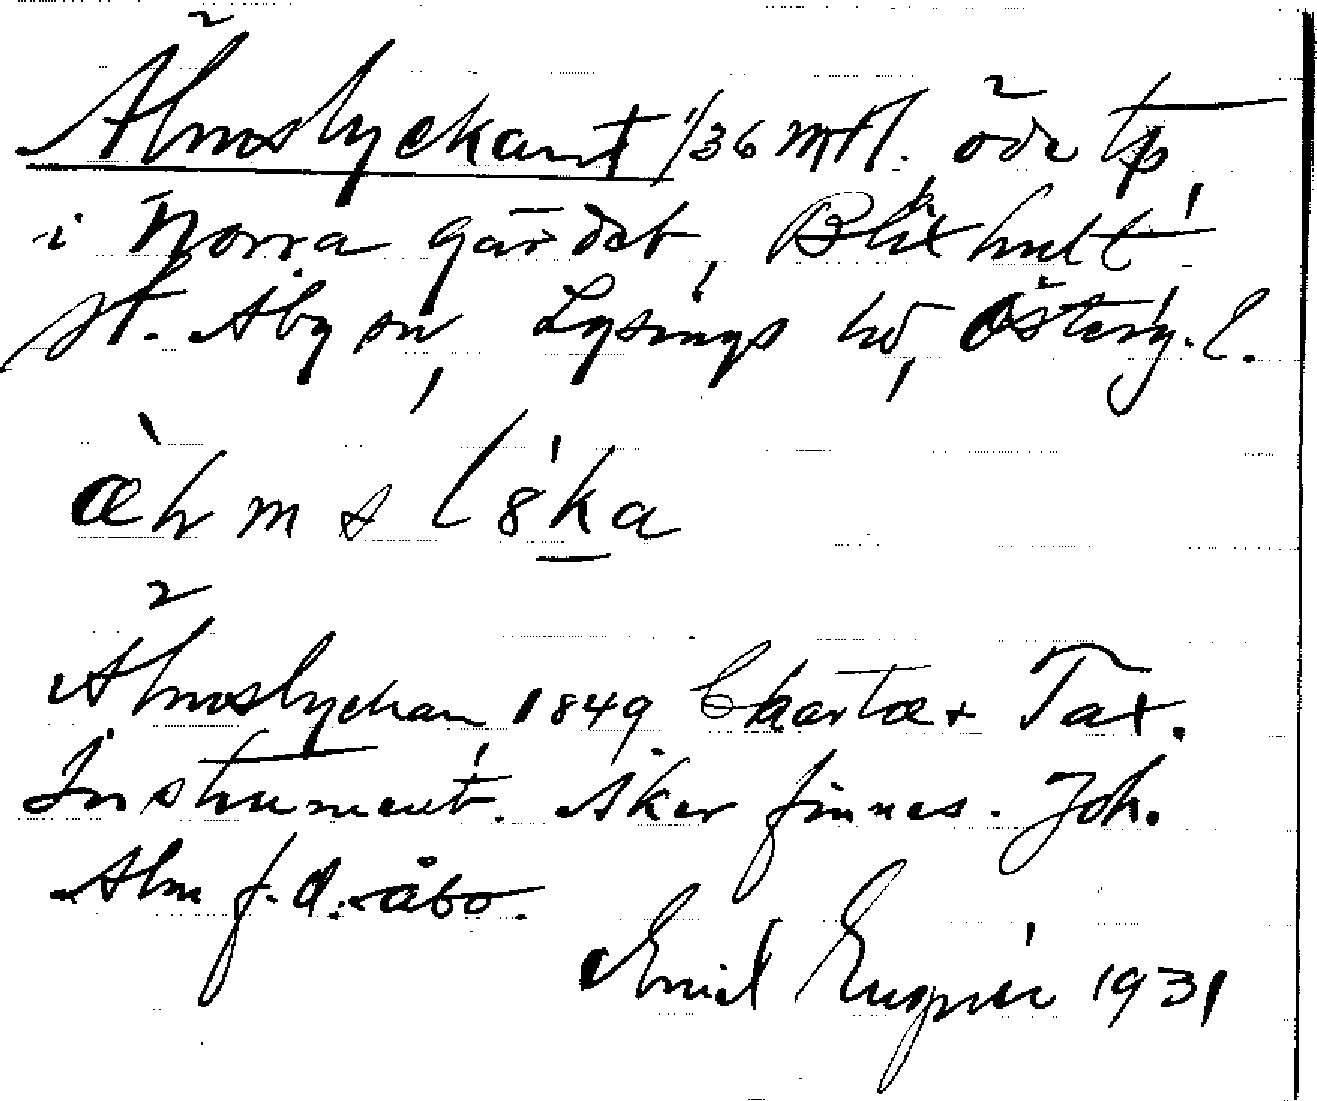 Älmslyckant 1/36 mtl. öde tp
i Norra gärdet, Blixhult
St. Åby sn, Lysings hd, Österg. l.
æ̀h m s l 8́ka
Älmslyckan 1849 Charta + Tax.
Instrument. Åker finnes. Joh.
Alm f. d. åbo.
Emil Eugnér 1931